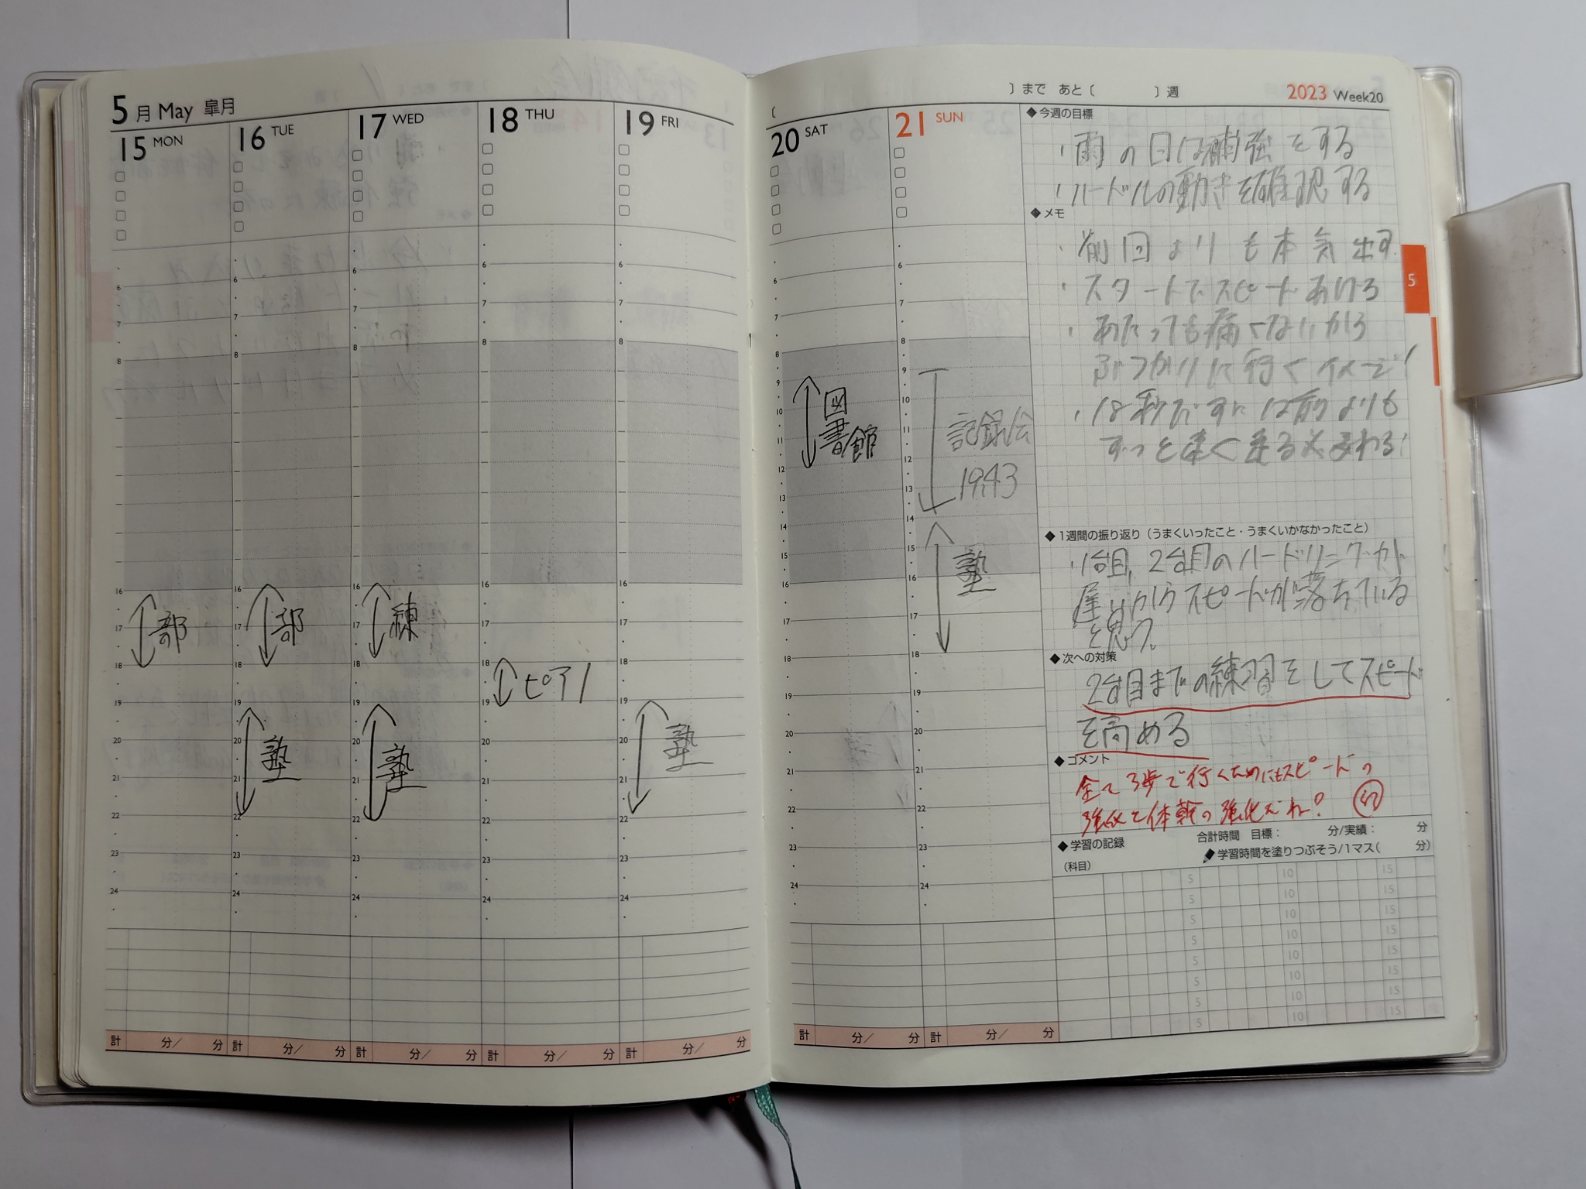 5月 May 皐月
15 MON
16 TUE
17 WED
18 THU
19 FRI
6 6 6 6 6
7 7 7 7 7
8 8 8 8 8
16 16 16 16 16
部
部
練
17 17 17 17 17
18 18 18 18 18
ピアノ
19 19 19 19 19
塾
塾
塾
20 20 20 20 20
21 21 21 21 21
22 22 22 22 22
23 23 23 23 23
24 24 24 24 24
計 分/ 分 計 分/ 分 計 分/ 分 計 分/ 分 計 分/ 分
〔 〕まで あと〔 〕週
2023 Week20
20 SAT
21 SUN
6 6
7 7
8 8
9 9
10 10
11 11
12 12
13 13
14 14
15 15
16 16
17 17
18 18
19 19
20 20
21 21
22 22
23 23
24 24
図書館
記録会
19.43
塾
計 分/ 分 計 分/ 分
◆今週の目標
・雨の日は補強をする
・ハードルの動きを確認する
◆メモ
・前回よりも本気出す
・スタートでスピードあげる
・あたっても痛くないから
ぶつかりに行くイメージ
・18秒だすには前よりも
ずっと速く走る
5
◆1週間の振り返り(うまくいったこと・うまくいかなかったこと)
・1台目、2台目のハードリングが
遅いからスピードが落ちている
と思う。
◆次への対策
2台目までの練習をしてスピード
を高める
◆コメント
全て3歩で行くためにもスピードの
強化と体幹の強化だね!
◆学習の記録
合計時間 目標: 分/実績: 分
学習時間を塗りつぶそう/1マス( 分)
(科目)
5 10 15
5 10 15
5 10 15
5 10 15
5 10 15
5 10 15